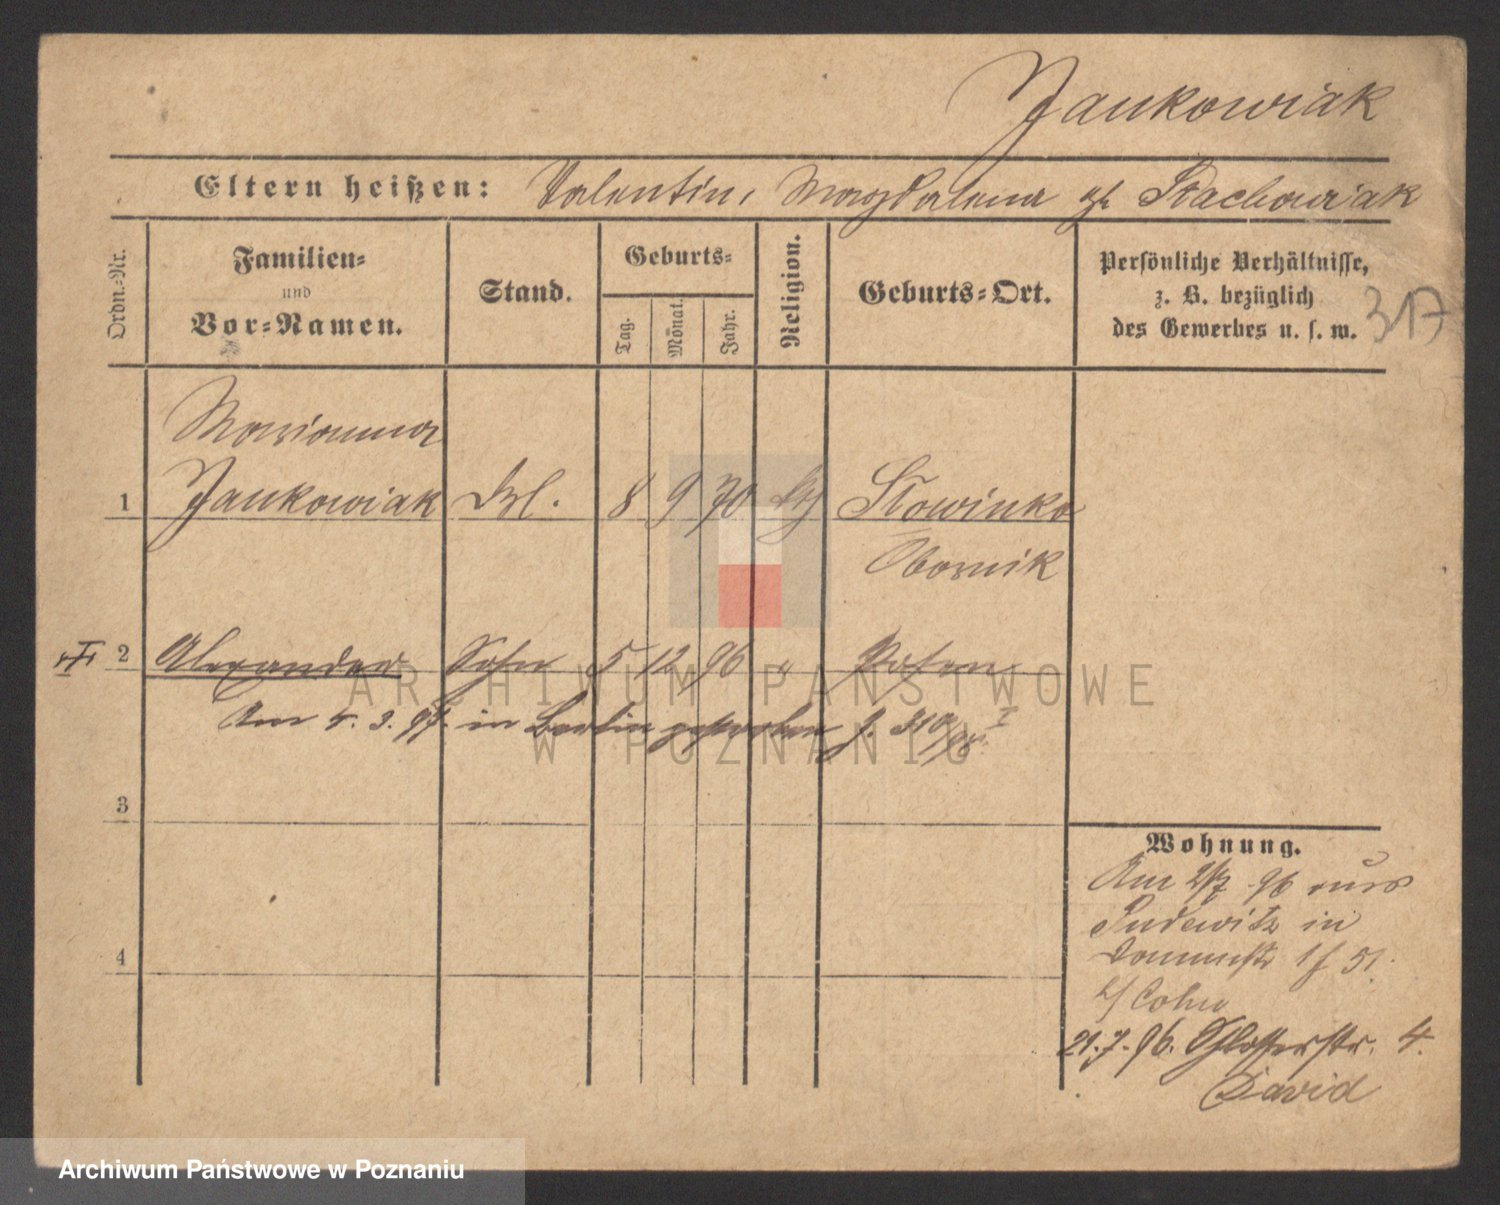 Jankowiak
Eltern heißen: Valentin, Magdalena gb Stachowiak
Ordn.-Nr.
Familien-
und
Vor-Namen.
Stand.
Geburts-
Tag.
Monat.
Jahr.
Religion.
Geburts-Ort.
Persönliche Verhältnisse,
z. B. bezüglich
des Gewerbes u. s. w.
317
Marianna
1 Jankowiak 8 9 70 Slowinko
Obornik
2 Alexander Sohn 5 12 96 " Posen
Am 4. 3. 97. in Berlin gestorben J. 310/98. I
3
4
Wohnung.
Am 2/7 96 aus
Pudewitz in
Dominstr 1 f 51.
b/ Cohn
21.7.96. Schlosserstr. 4.
David
ARCHIWUM PAŃSTWOWE
W POZNANIU
Archiwum Państwowe w Poznaniu